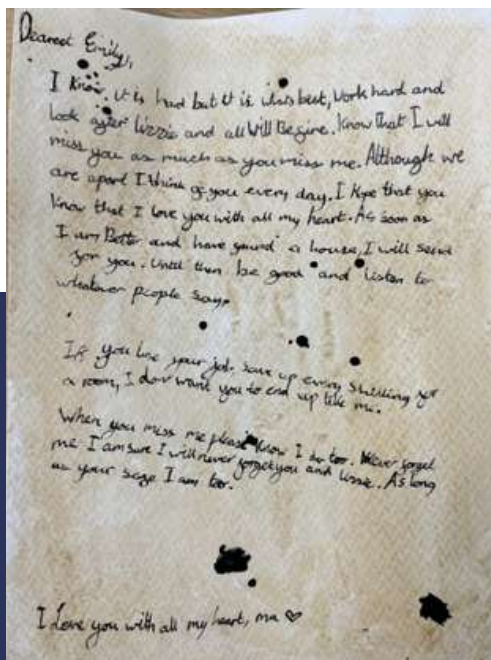 Dearest Emily,
I know it is had but it is whats best, work hard and
look after lizzie and all will be fine. Know that I will
miss you as much as you miss me. Although we
are apart I think of you every day. I hope that you
know that I love you with all my heart. As soon as
I am Better and have found a house, I will send
for you. Until then be good and listen to
whatever people say.
If you lose your job save up every shilling for
a room, I don't want you to end up like me.
When you miss me please know I do too. Never forget
me I am sure I will never forget you and lizzie. As long
as your safe I am too.
I Love you with all my heart, ma ♡